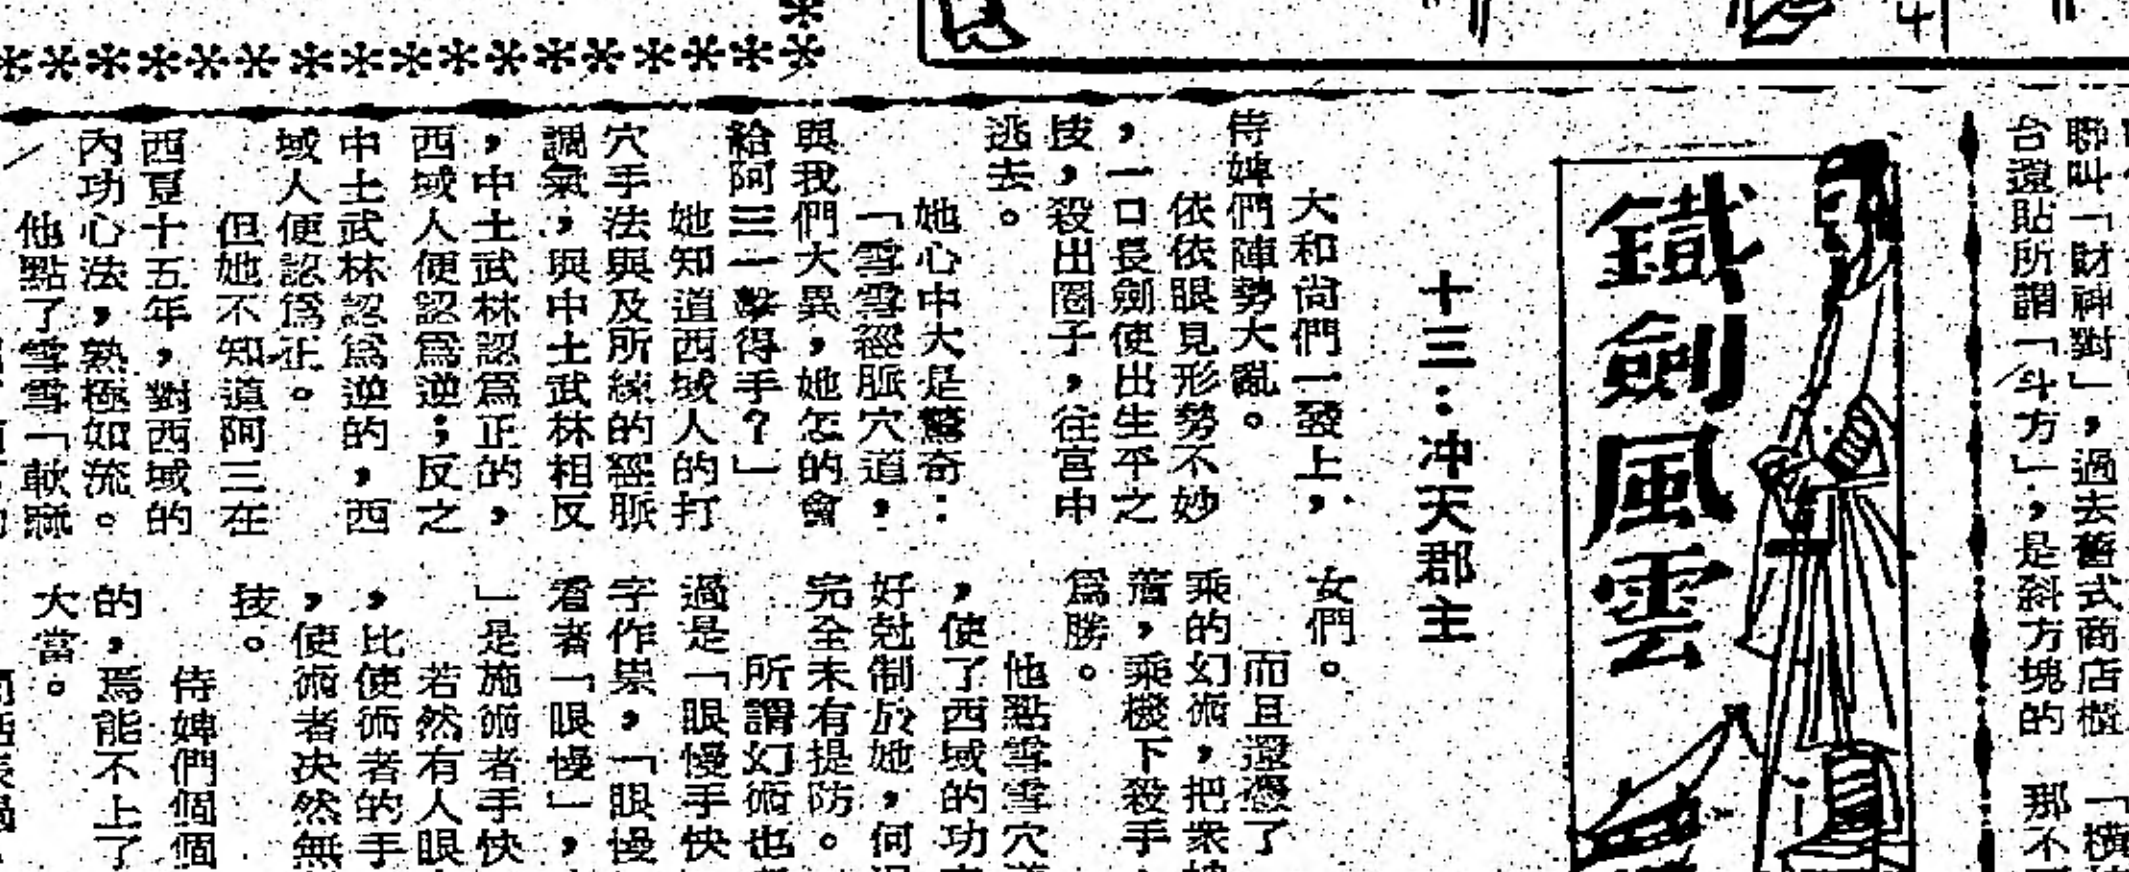 聯叫「財神對」，過去舊式商店櫃
台還貼所謂「斗方」，是斜方塊的
「橫
那不
鐵劍風雲
十三：冲天郡主
大和尚們一發上，
侍婢們陣勢大亂。
依依眼見形勢不妙
，一口長劍使出生平之
技，殺出圈子，往宮中
逃去。
她心中大是驚奇：
「雪雪經脈穴道，
與我們大異，她怎的會
給阿三一擊得手？」
她知道西域人的打
穴手法與及所練的經脈
調氣，與中土武林相反
，中土武林認爲正的，
西域人便認爲逆；反之
中土武林認爲逆的，西
域人便認爲正。
但她不知道阿三在
西夏十五年，對西域的
內功心法，熟極如流。
他點了雪雪「軟
女們。
而且還憑了
乘的幻術，把衆
着，乘機下殺手
爲勝。
他點雪雪穴
，使了西域的功
好尅制於她，何
完全未有提防。
所謂幻術也
過是「眼慢手快
字作祟，「眼慢
看者「眼慢」，
」是施術者手快
若然有人眼
，比使術者的手
，使術者决然無
技。
侍婢們個個
的，焉能不上了
大當。